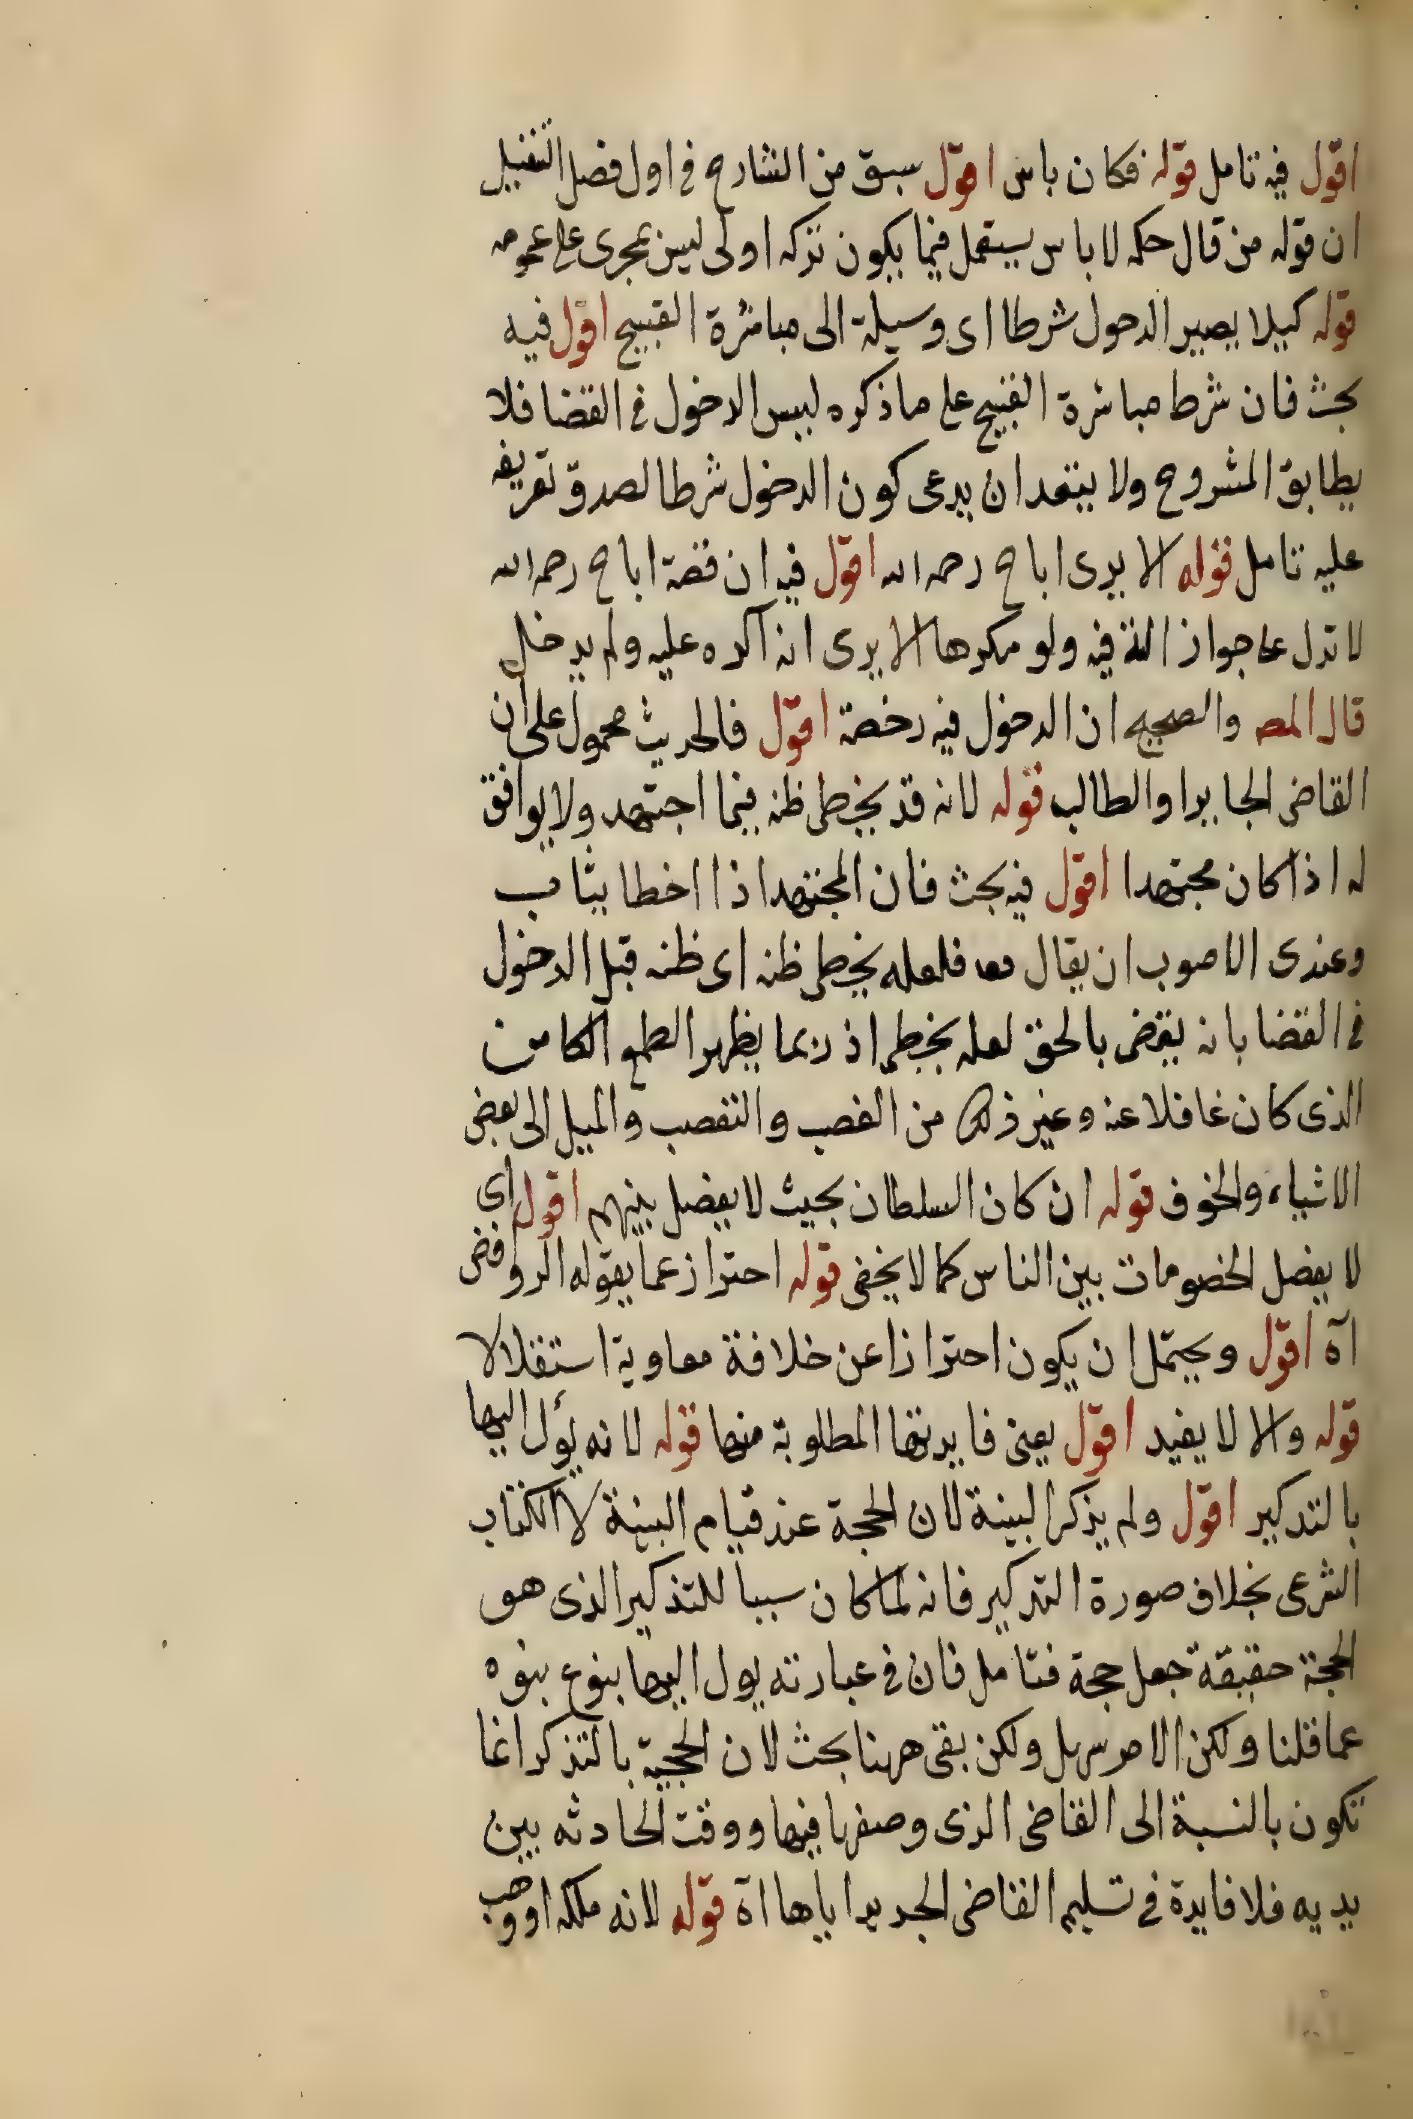 اقول فيه تامل قوله فكان باس اقول سبق من الشارح فى اول فصل التنفيل
ان قوله من قال حكمه لا باس يستعمل فيما يكون تركه اولى ليس بمجرى على عمومه
قوله كيلا يصير الدحول شرطا اى وسيلة الى مباشرة القبيح اقول فيه
بحث فان شرط مباشرة القبيح على ما ذكره ليس الدخول فى القضا فلا
يطابق المشروح ولا يبتعد ان يدعى كون الدخول شرطا لصدق تعريفه
عليه تامل قوله الا يرى اباح رحمه الله اقول فيه ان قصة اباح رحمه الله
لا تدل على جواز فيه ولو مكرها الا يرى انه اكره عليه ولم يدخل
قال المص والصحيح ان الدخول فيه رخصة اقول فالحديث محمول على ان
القاضى الجاير او الطالب قوله لانه قد يخطى ظنه فيما اجتهد ولا يوافق
له اذا كان مجتهدا اقول فيه بحث فان المجتهد اذا اخطا يثاب
وعندى الاصوب ان يقال فلعله يخطى ظنه اى ظنه قبل الدخول
فى القضا بانه يقضى بالحق لعله يخطى اذ ربما يظهر الطمع الكامن
الذى كان غافلا عنه وغير ذلك من الغضب والتعصب والميل الى بعض
الاشياء والخوف قوله ان كان السلطان بحيث لا يفصل بينهم اقول اى
لا يفصل الخصومات بين الناس كما لا يخفى قوله احتراز عما يقوله الروافض
اه اقول ويحتمل ان يكون احترازا عن خلافة معاوية استقلالا
قوله والا لا يفيد اقول يعنى فايدتها المطلوبة منها قوله لانه يؤل اليها
بالتدكير اقول ولم يذكر البينة لان الحجة عند قيام البينة لا الكتاب
الشرعى بخلاف صورة التدكير فانه لما كان سببا للتذكير الذى هو
الحجة حقيقة جعل حجة فتامل فان فى عبارته يول اليها بنوع بنوه
عما قلنا ولكن الامر سهل ولكن بقى ههنا بحث لان الحجية بالتذكر انما
تكون بالنسبة الى القاضى الذى وصفها فيها ووقت الحادثه بين
يديه فلا فايدة فى تسليم القاضى الجديد اياها اه قوله لانه ملكه او وهب